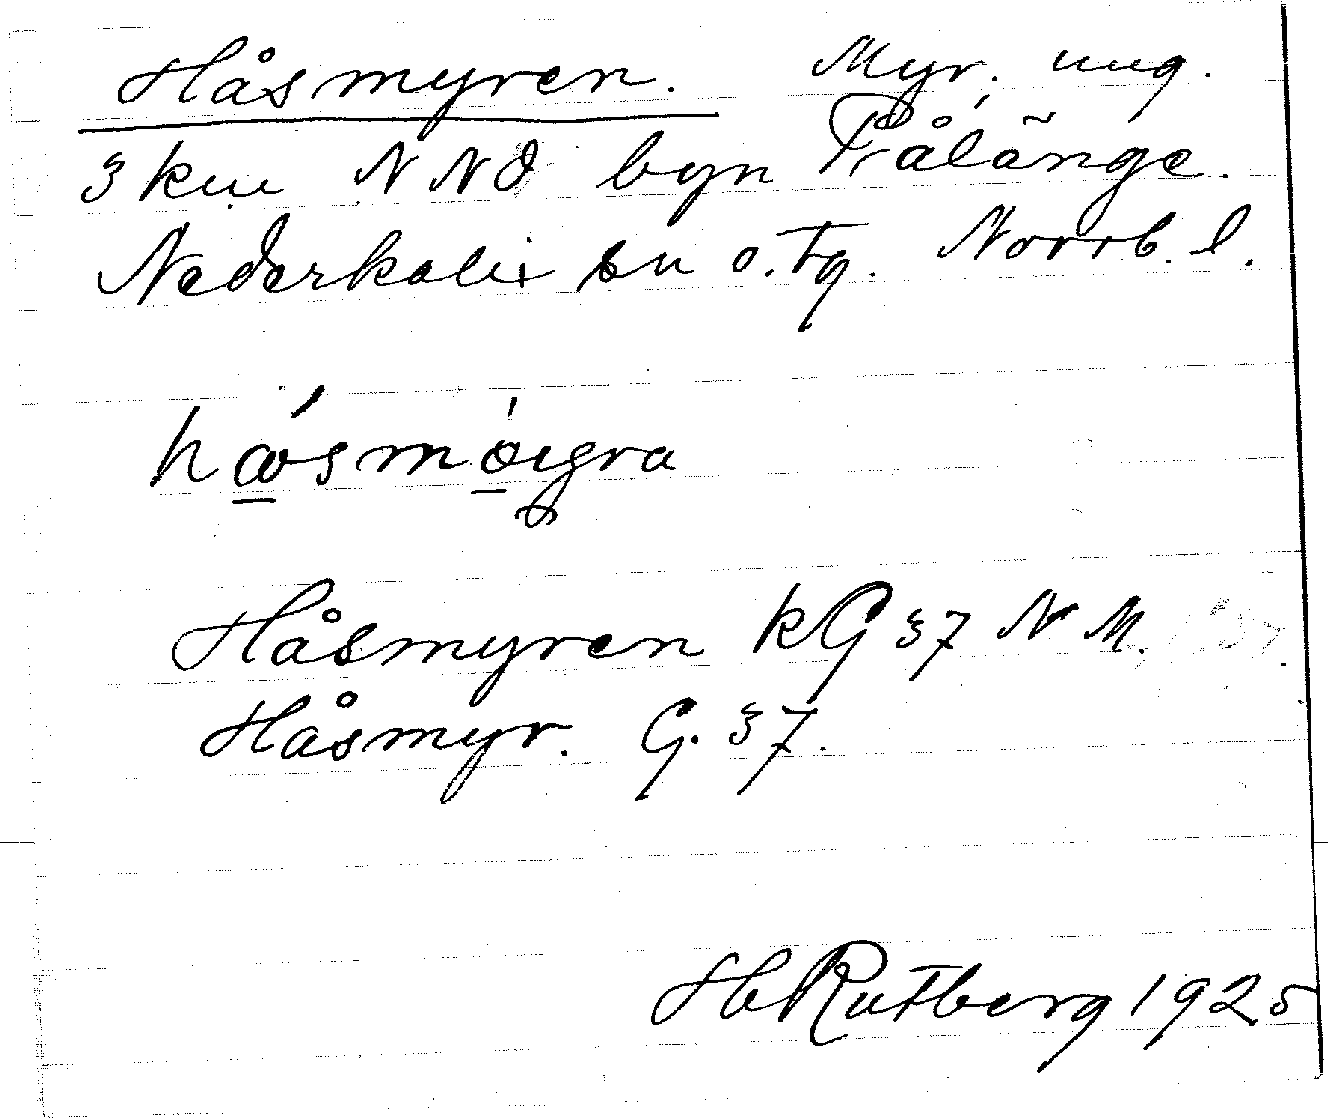 Håsmyren. Myr, ung.
3 km NNO byn Pålänge.
Nederkalix sn o. tg. Norrb. l.
Håsmyren kG 37 N M.
Håsmyr. G. 37.
H Rutberg 1925